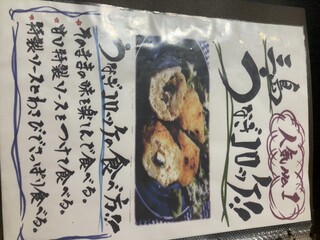 人気No.1
三島
うなぎコロッケ!!
うなぎコロッケの食べ方!!
*そのままの味を楽しんで食べる。
*甘口特製ソースをつけて食べる。
*特製ソースとわさびでさっぱり食べる。